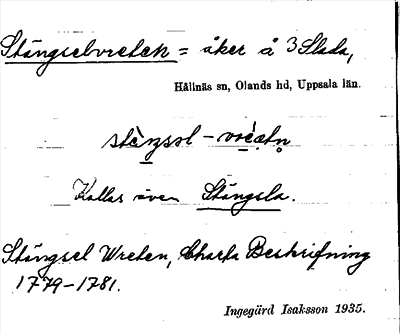 Stängselvreten = åker å 3 Slada,
Hållnäs sn, Olands hd, Uppsala län.
Kallas även Stängsla.
Stängsel Wreten, Charta Beskrifning
1779-1781.
Ingegärd Isaksson 1935.